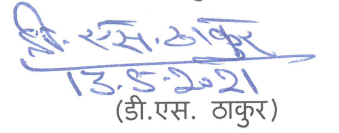 डी. एस. ठाकुर
13.5.2021
(डी.एस. ठाकुर)